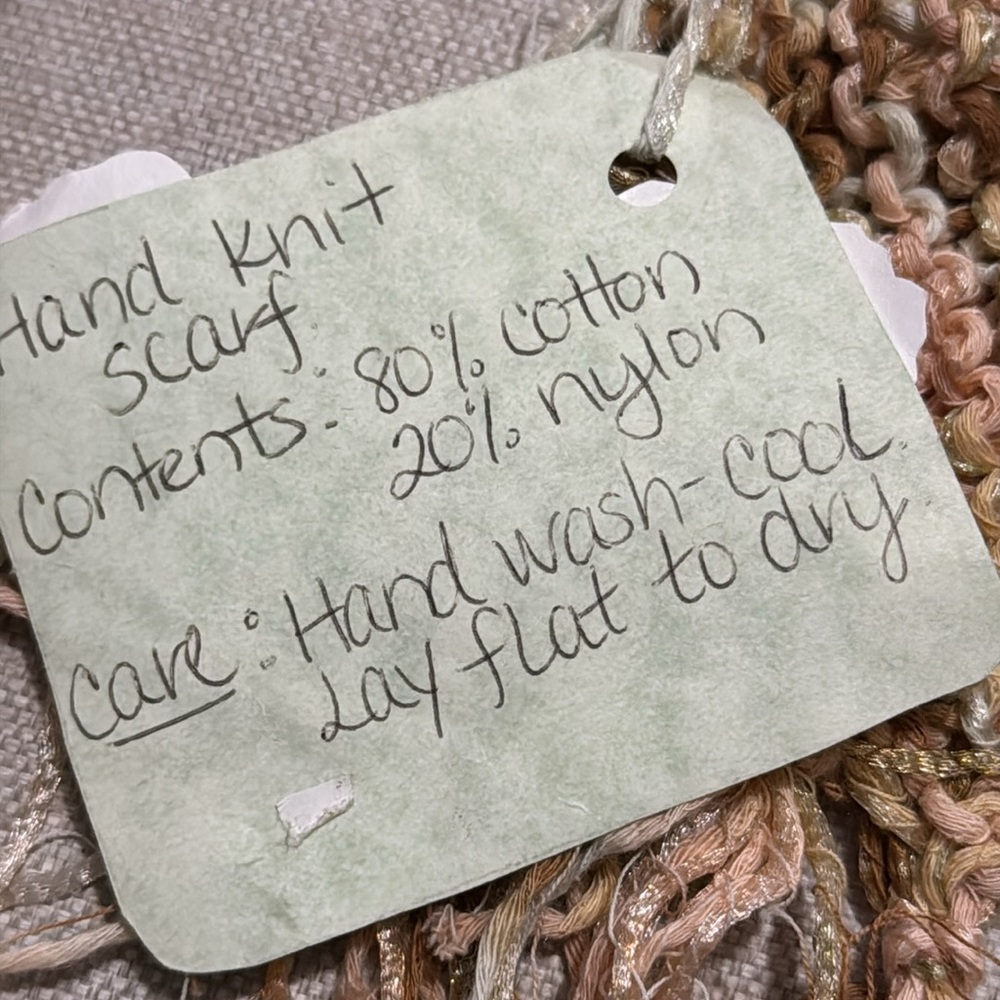 Hand Knit
scarf.
Contents. 80% cotton
20% nylon
Care: Hand wash-cool.
Lay flat to dry